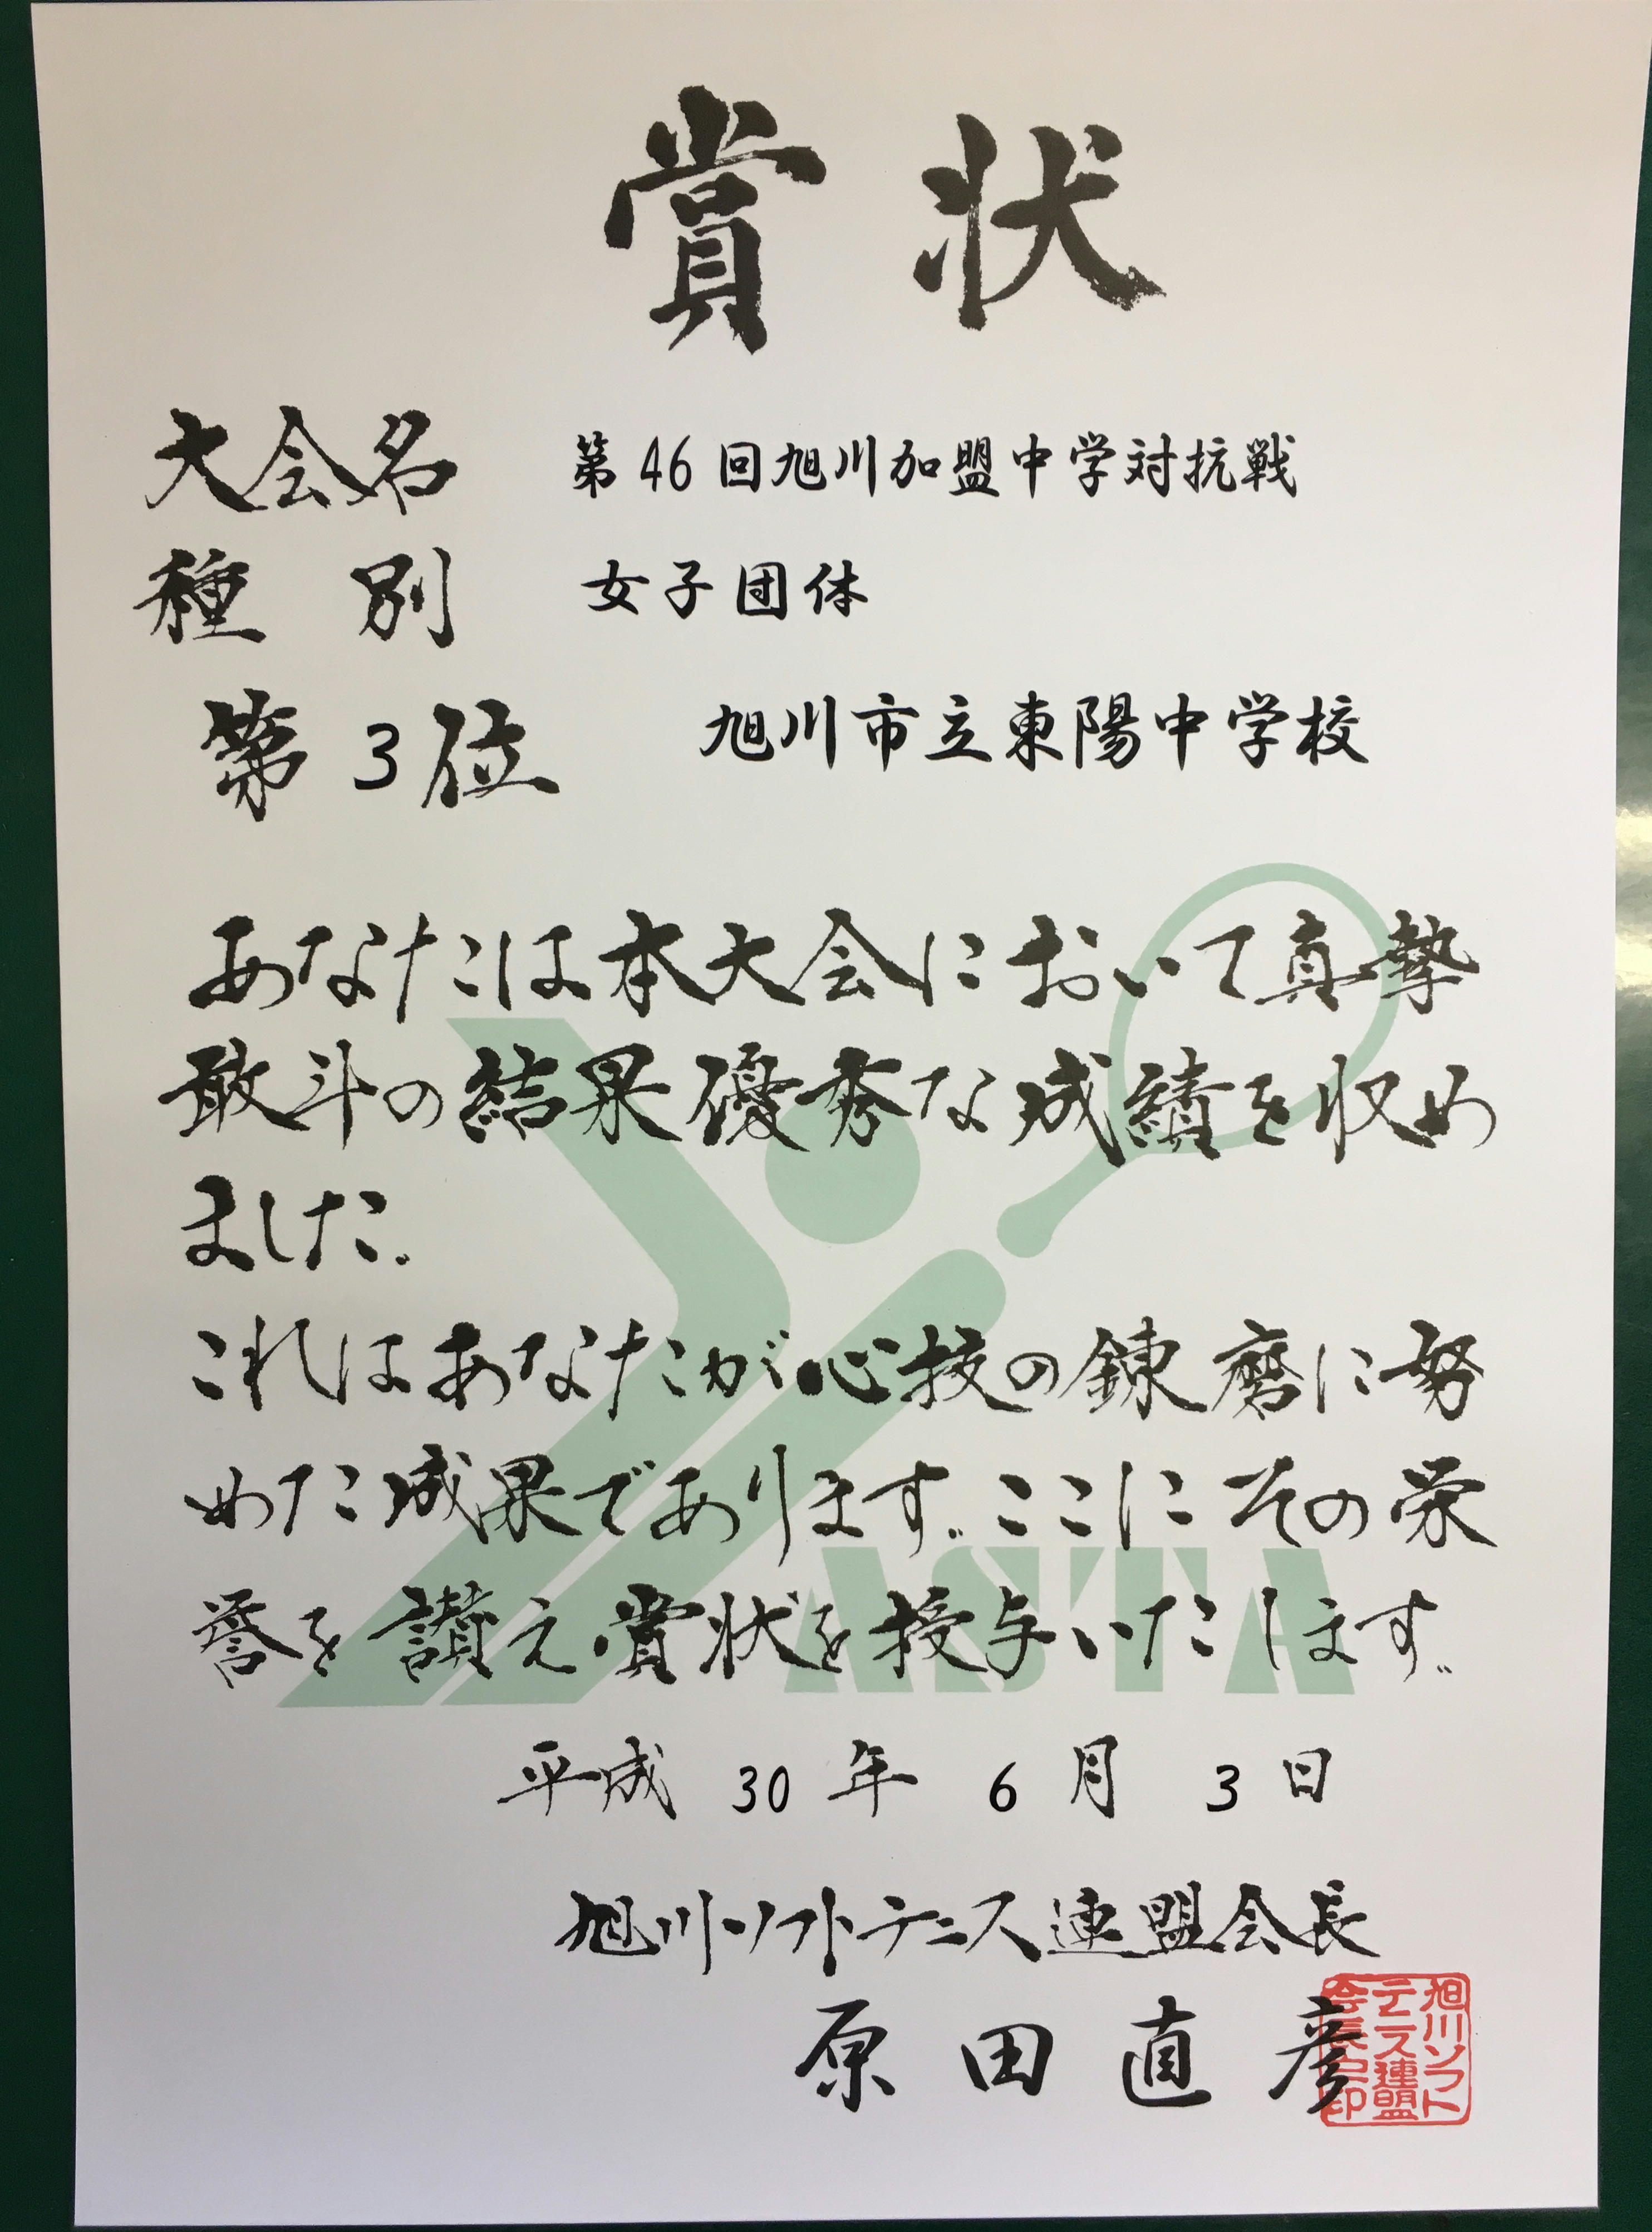 賞状
大会名 第46回旭川加盟中学対抗戦
種別 女子団体
第3位 旭川市立東陽中学校
あなたは本大会において真摯
敢斗の結果優秀な成績を収め
ました。
これはあなたが心技の錬磨に努
めた成果であります。ここにその栄
誉を讃え賞状を授与いたします。
ASTA
平成30年6月3日
旭川ソフトテニス連盟会長
原田直彦
旭川ソフト
テニス連盟
会長之印